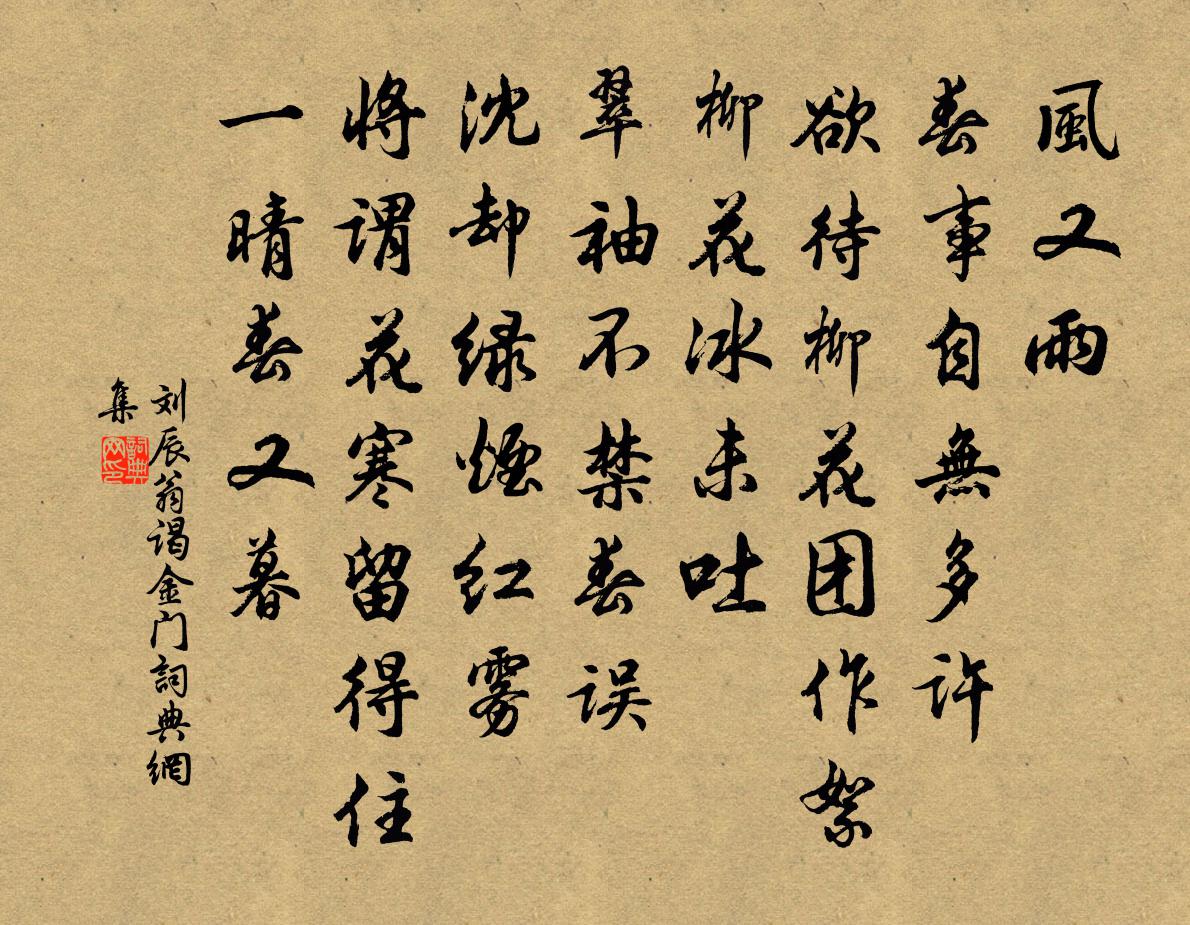 風又雨
春事自無多許
欲待柳花团作絮
柳花冰未吐
翠袖不禁春误
沈却绿烟红雾
将谓花寒留得住
一晴春又暮
刘辰翁谒金门詞典網
集
詞典
网印